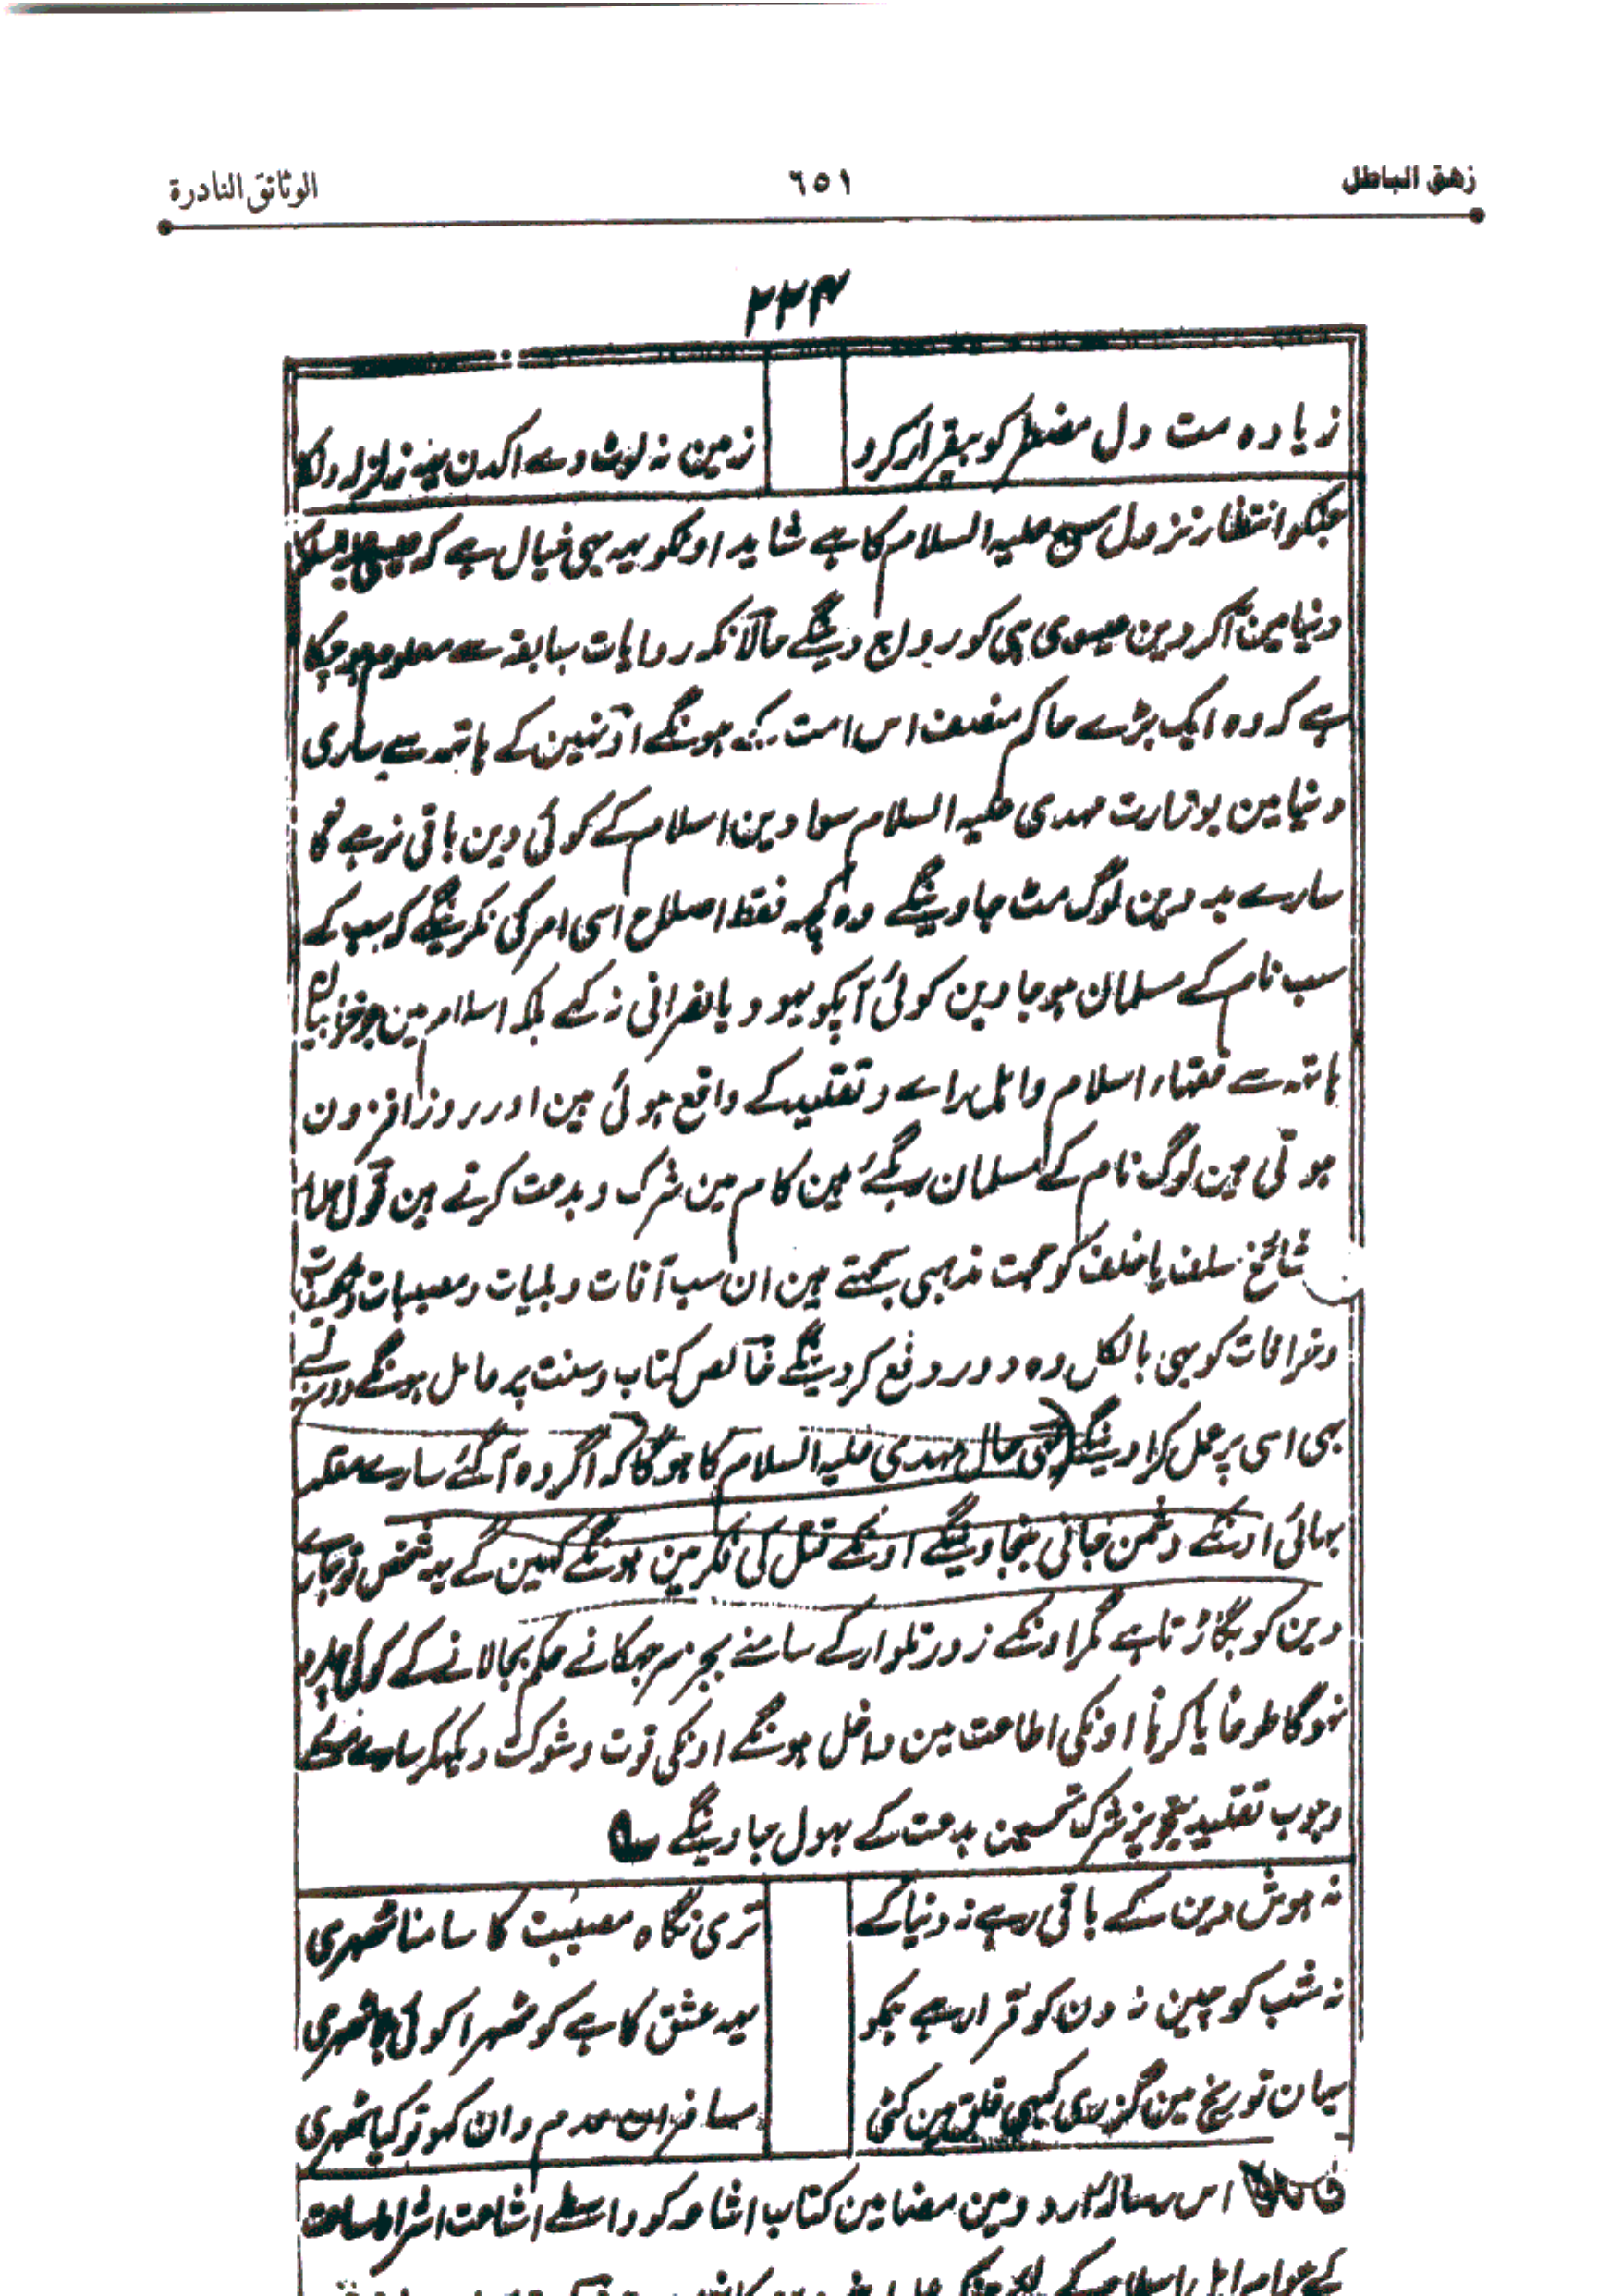 زهق الباطل
٦٥١
الوثائق النادرة
۲۲۴
زیادہ مت دل مضطر کو بیقرار کرو
زمین نہ لوٹ دے اکدن یہ زلزلہ دلکا
جنکو انتظار نزول مسیح علیہ السلام کا ہے شاید اونکو یہہ بھی خیال ہے کہ
دنیا مین آکر دین عیسوی ہی کو رواج دینگے حالانکہ روایات سابقہ سے معلوم ہو چکا
ہے کہ وہ ایک بڑے حاکم منصف اس امت کے ہونگے اونہین کے ہاتہہ سے ساری
دنیا مین بوزارت مہدی علیہ السلام سوا دین اسلام کے کوئی دین باقی نرہے گا
سارے بد دین لوگ مٹ جاوینگے وہ کچہہ فقط اصلاح اسی امر کی نکرینگے کہ سب کے
سب نام کے مسلمان ہوجاوین کوئی آپکو یہود یا نصرانی نہ کہے بلکہ اسلام مین جو
ہاتہہ سے فقہاء اسلام و اہل راے و تقلید کے واقع ہوئی ہین اور روز افزون
ہوتی ہین لوگ نام کے مسلمان رہگئے ہین کام مین شرک و بدعت کرتے ہین قول
سلف یا خلف کو حجت مذہبی سمجہتے ہین ان سب آفات و بلیات و مصیبات
و خرافات کو بہی بالکل وہ دور دفع کر دینگے خالص کتاب و سنت پر عامل ہونگے
بہی اسی پر عمل کرا دینگے یہی حال مہدی علیہ السلام کا ہوگا کہ اگر وہ آگئے سارے مقلد
بہائی اونکے دشمن جانی بنجاوینگے اونکے قتل کی فکر مین ہونگے کہین گے یہہ شخص تو ہمارے
دین کو بگاڑتا ہے مگر اونکے زور تلوار کے سامنے بجز سر جہکانے حکم بجالانے کے کوئی چارہ
نہوگا طوعا یا کرہا اونکی اطاعت مین داخل ہونگے اونکی قوت و شوکت دیکہکر سارے
وجوب تقلید تجویز شرک تحسین بدعت کے بہول جاوینگے
نہ ہوش دین کے باقی رہے نہ دنیا کے
تری نگاہ مصیبت کا سامنا ٹھہری
نہ شب کو چین نہ دن کو قرار ہے ہمکو
یہہ عشق کا ہے کو ٹھہرا کوئی بلا ٹھہری
میان تو رنج مین گزری کبہی قلق مین کٹی
مسافران عدم وان کہو تو کیا ٹھہری
اس رسالہ اردو مین مضامین کتاب اشاعہ کو واسطے اشاعت اشراط ساعت